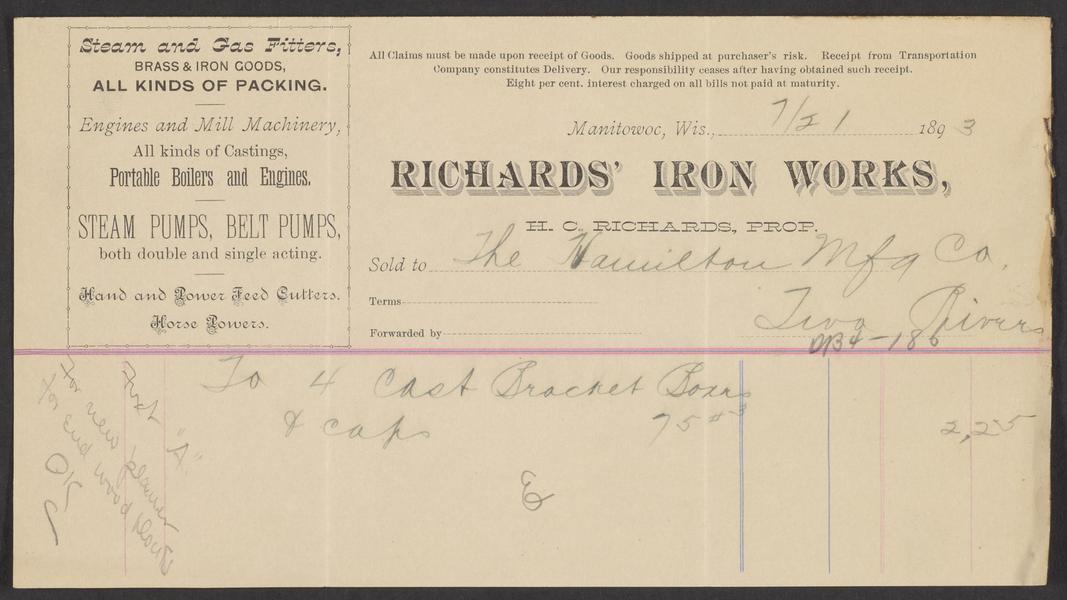 Steam and Gas Fitters,
BRASS & IRON GOODS,
ALL KINDS OF PACKING.
Engines and Mill Machinery,
All kinds of Castings,
Portable Boilers and Engines.
STEAM PUMPS, BELT PUMPS,
both double and single acting.
Hand and Power Feed Cutters.
Horse Powers.
All Claims must be made upon receipt of Goods. Goods shipped at purchaser's risk. Receipt from Transportation
Company constitutes Delivery. Our responsibility ceases after having obtained such receipt.
Eight per cent. interest charged on all bills not paid at maturity.
Manitowoc, Wis., 7/21 1893
RICHARDS' IRON WORKS,
H. C. RICHARDS, PROP.
Sold to The Hamilton Mfg Co.
Terms
Two Rivers
Forwarded by
To 4 Cast Bracket Boxes
& caps 75 2,25
"A"
for new planer
for end wood
OK